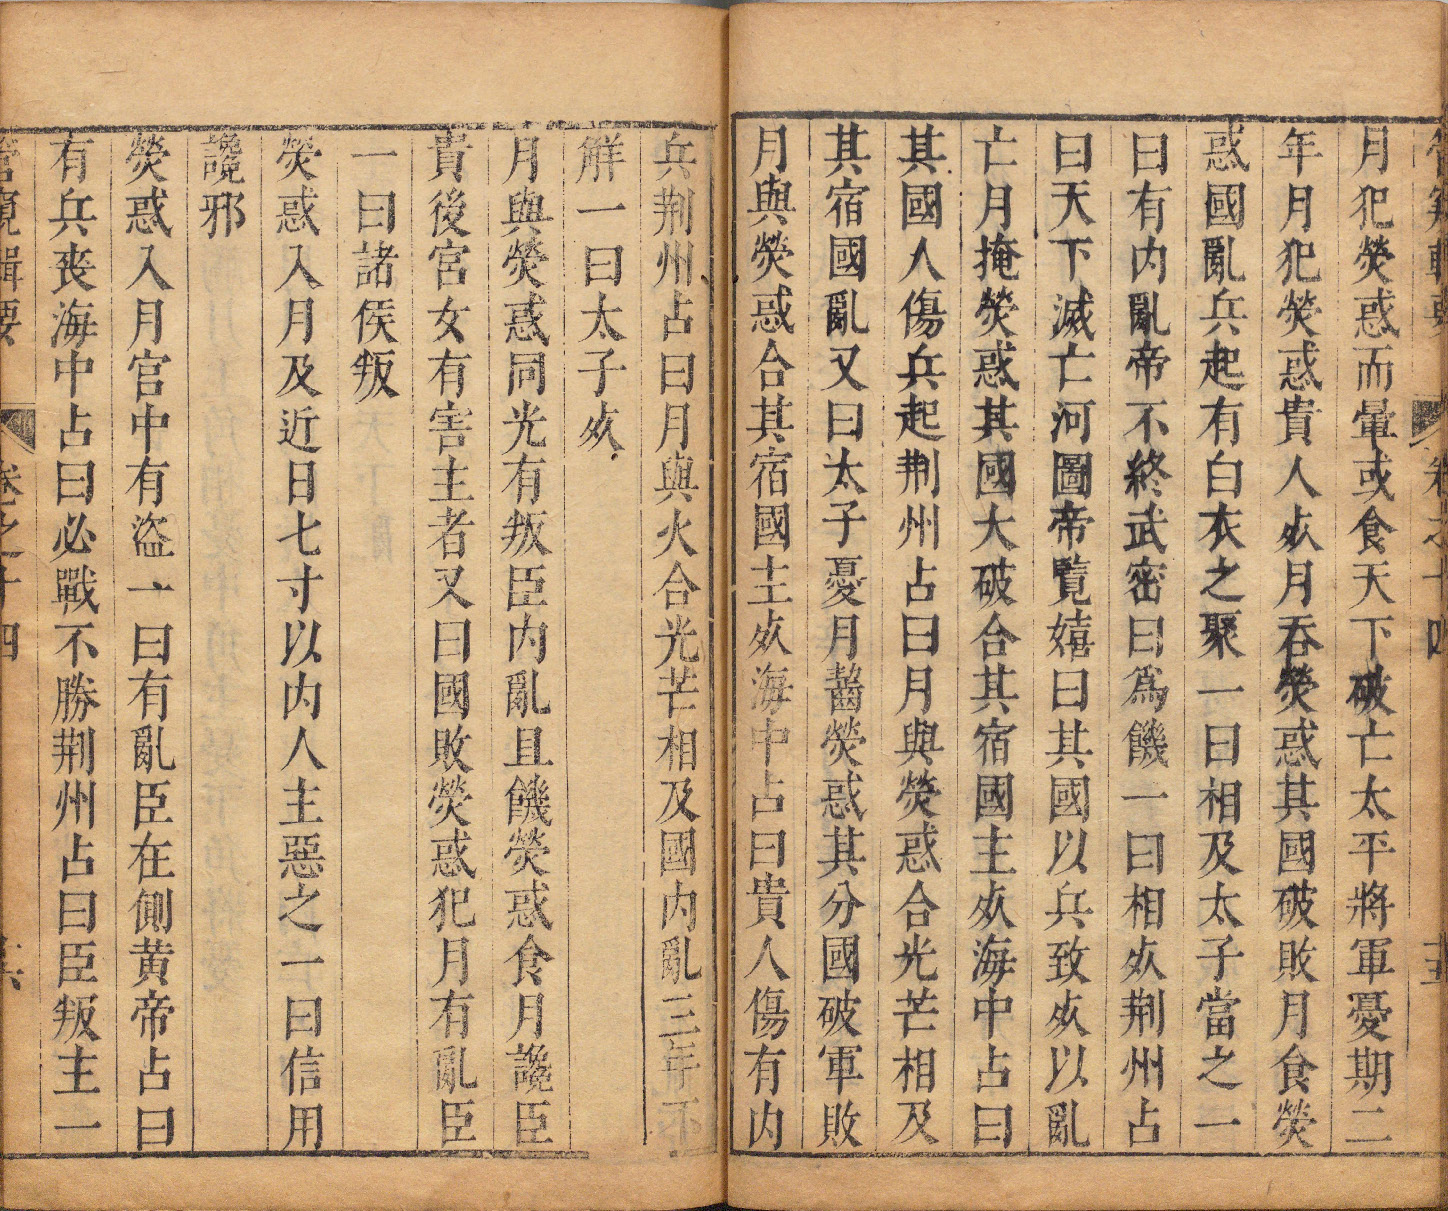 管窺輯要 卷之十四 十五
月犯熒惑而暈或食天下破亡太平將軍憂期二
年月犯熒惑貴人𣦸月吞熒惑其國破敗月食熒
惑國亂兵起有白衣之聚一曰相及太子當之一
曰有内亂帝不終武密曰爲饑一曰相𣦸荆州占
曰天下滅亡河圖帝覽嬉曰其國以兵致𣦸以亂
亡月掩熒惑其國大破合其宿國主𣦸海中占曰
其國人傷兵起荆州占曰月與熒惑合光芒相及
其宿國亂又曰太子憂月齧熒惑其分國破軍敗
月與熒惑合其宿國主𣦸海中占曰貴人傷有内
兵荆州占曰月與火合光芒相及國内亂三年不
觧一曰太子𣦸
月與熒惑同光有叛臣内亂且饑熒惑食月讒臣
貴後宮女有害主者又曰國敗熒惑犯月有亂臣
一曰諸侯叛
熒惑入月及近日七寸以内人主惡之一曰信用
讒邪
熒惑入月宫中有盜一曰有亂臣在側黄帝占曰
有兵丧海中占曰必戰不勝荆州占曰臣叛主一
管窺輯要 卷之十四 十六